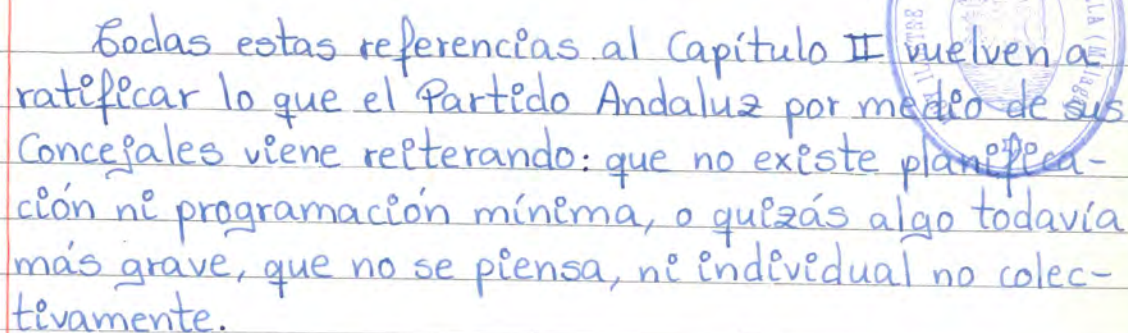 Todas estas referencias al Capítulo II vuelven a
ratificar lo que el Partido Andaluz por medio de sus
Concejales viene reiterando: que no existe planifica-
ción ni programación mínima, o quizás algo todavía
más grave, que no se piensa, ni individual no colec-
tivamente.